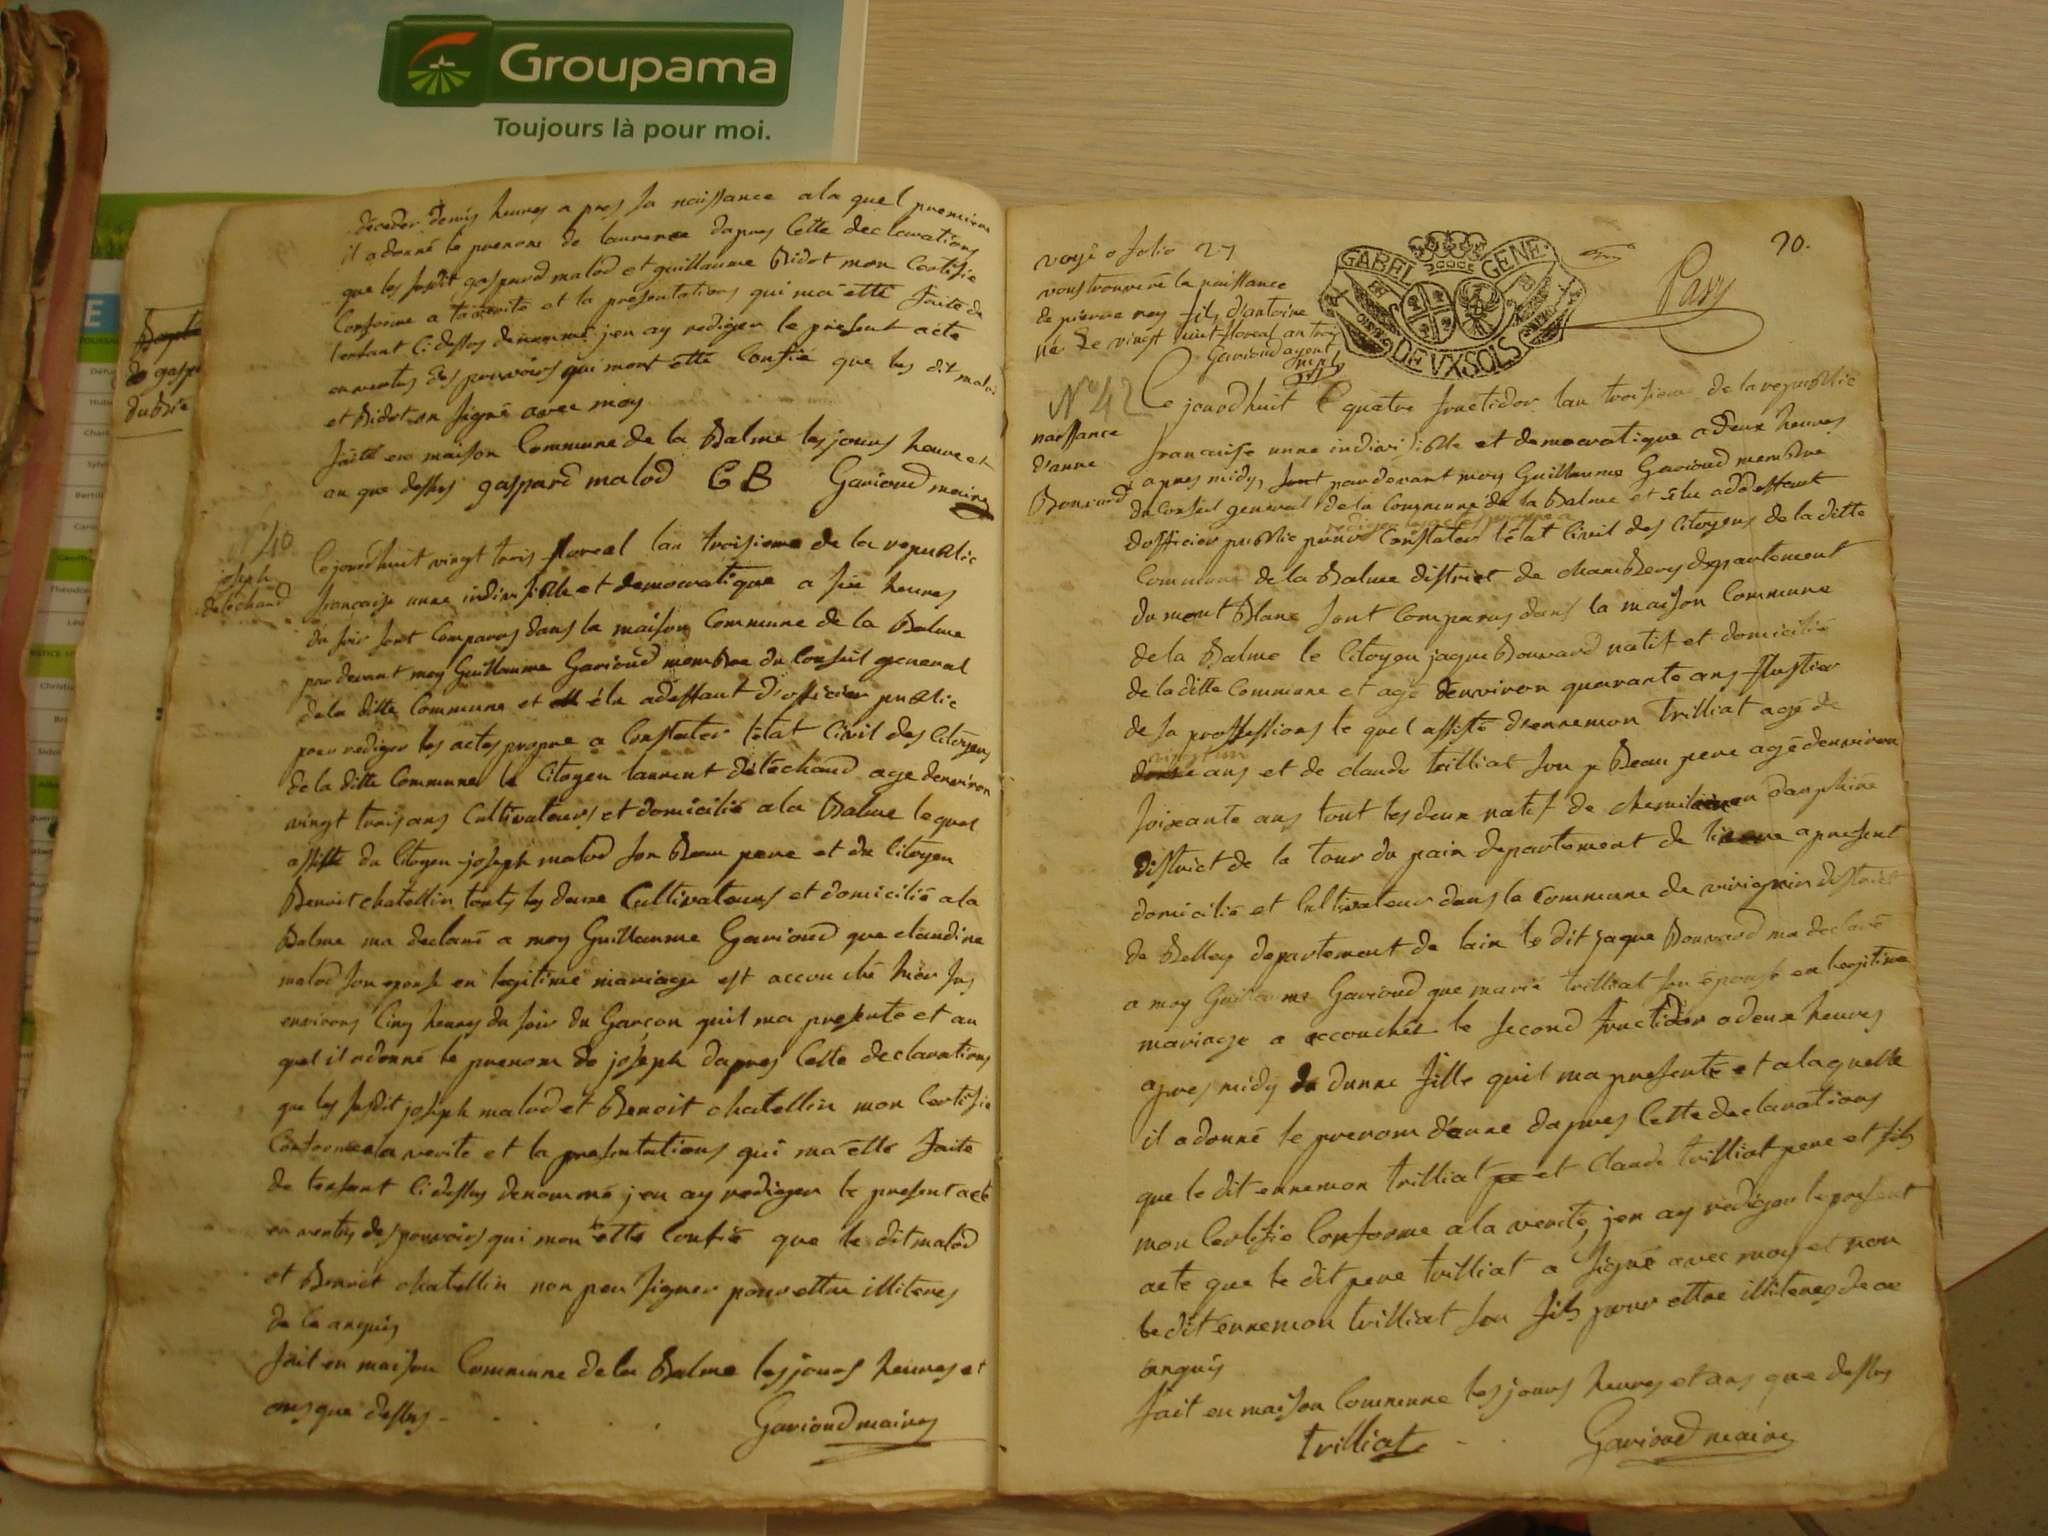 Groupama
Toujours là pour moi.
deceder demis heures a pres sa naissance ala quel premiere
il a donné le prenom de laurence dapres cette declarations
que les susdit gaspard malod et guillaume Bidot mon certifie
Conforme a la verité et la presentations qui ma etté faite de
lenfant ci dessus denommé jen ay rediger le present acte
en vertus des pouvoirs qui mont etté confié que les dit malod
et Bidot on signé avec moy
faite en maison Commune de la Balme les jours heure et
an que dessus gaspard malod GB Garioud maire
de gasp
N° 40
joseph
deléchaud
Ce jourdhuit vingt trois floreal lan troisieme de la republic
francaise unne indivisible et democratique a six heures
du soir sont Comparus dans la maison Commune de la Balme
par devant moy Guillaume Garioud membre du Conseil general
de la ditte Commune et élu adeffaut d'officier public
pour rediger les actes propre a Constater létat Civil des Citoyens
de la ditte Commune le Citoyen laurent deléchaud age denviron
vingt trois ans Cultivateurs et domicilié ala Balme lequel
assisté du Citoyen joseph malod son Beau pere et du Citoyen
Benoit chatellin touts les deux Cultivateurs et domicilié ala
Balme ma declaré a moy Guillaume Garioud que claudine
malod son epouse en legitime mariage est accouché hier sur
environs cinq heures du soir du Garcon quil ma presenté et au
quel il a donné le prenom de joseph dapres Cette declarations
que les susdit joseph malod et Benoit chatellin mon Certifie
Conforme a la verité et la presentations qui ma étté faite
de lenfant ci dessus denommé jen ay rediger le present acte
en vertus des pouvoirs qui mon etté Confié que le dit malod
et Benoit chatellin non peu signer pour ettre illiteres
de ce anquis
fait en maison Commune de la Balme les jours heures et
ans que dessus
Garioud maire
voyé o folio 27
vous trouverè la naissance
de pierre rey fils d'antoine
né le vingt huit floreal an trois
Garioud agent
GABEL GENE
DEUX SOLS
20.
Pavy
N° 42
naissance
d'anne
Bouvard
Ce jourdhuit le quatre fructidor lan troisieme de la republic
francaise unne indivisible et democratique a deux heures
apres midy, par devant moy Guillaume Garioud membre
du Conseil general de la Commune de la Balme et élu adeffaut
rediger les actes propre a
dofficier public pour Constater létat Civil des Citoyens de la ditte
Commune de la Balme district de chambery departement
du mont Blanc sont Comparus dans la maison Commune
de la Balme le Citoyen jaque Bouvard natif et domicilié
de la ditte Commune et agé denviron quarante ans flustier
de sa proffessions le quel assisté dennemon trilliat agé de
ans et de claude trilliat son Beau pere agé denviron
soixante ans tout les deux natif de en dauphine
district de la tour du pain departement de a present
domicilié et Cultivateur dans la Commune de virignin district
de Belley departement de lain le dit jaque Bouvard ma declaré
a moy Guillaume Garioud que marie trilliat son épouse en legitime
mariage a accouchée le second fructidor a deux heures
apres midy dunne fille quil ma presenté et ala quelle
il a donné le prenom d'anne dapres Cette declarations
que le dit ennemon trilliat et claude trilliat pere et fils
mon Certifie Conforme a la verité, jen ay rediger le present
acte que le dit pere trilliat a signé avec moy et non
le dit ennemon trilliat son fils pour ettre illiteres de ce
anquis
fait en maison Commune les jours heures et ans que dessus
trilliat Garioud maire